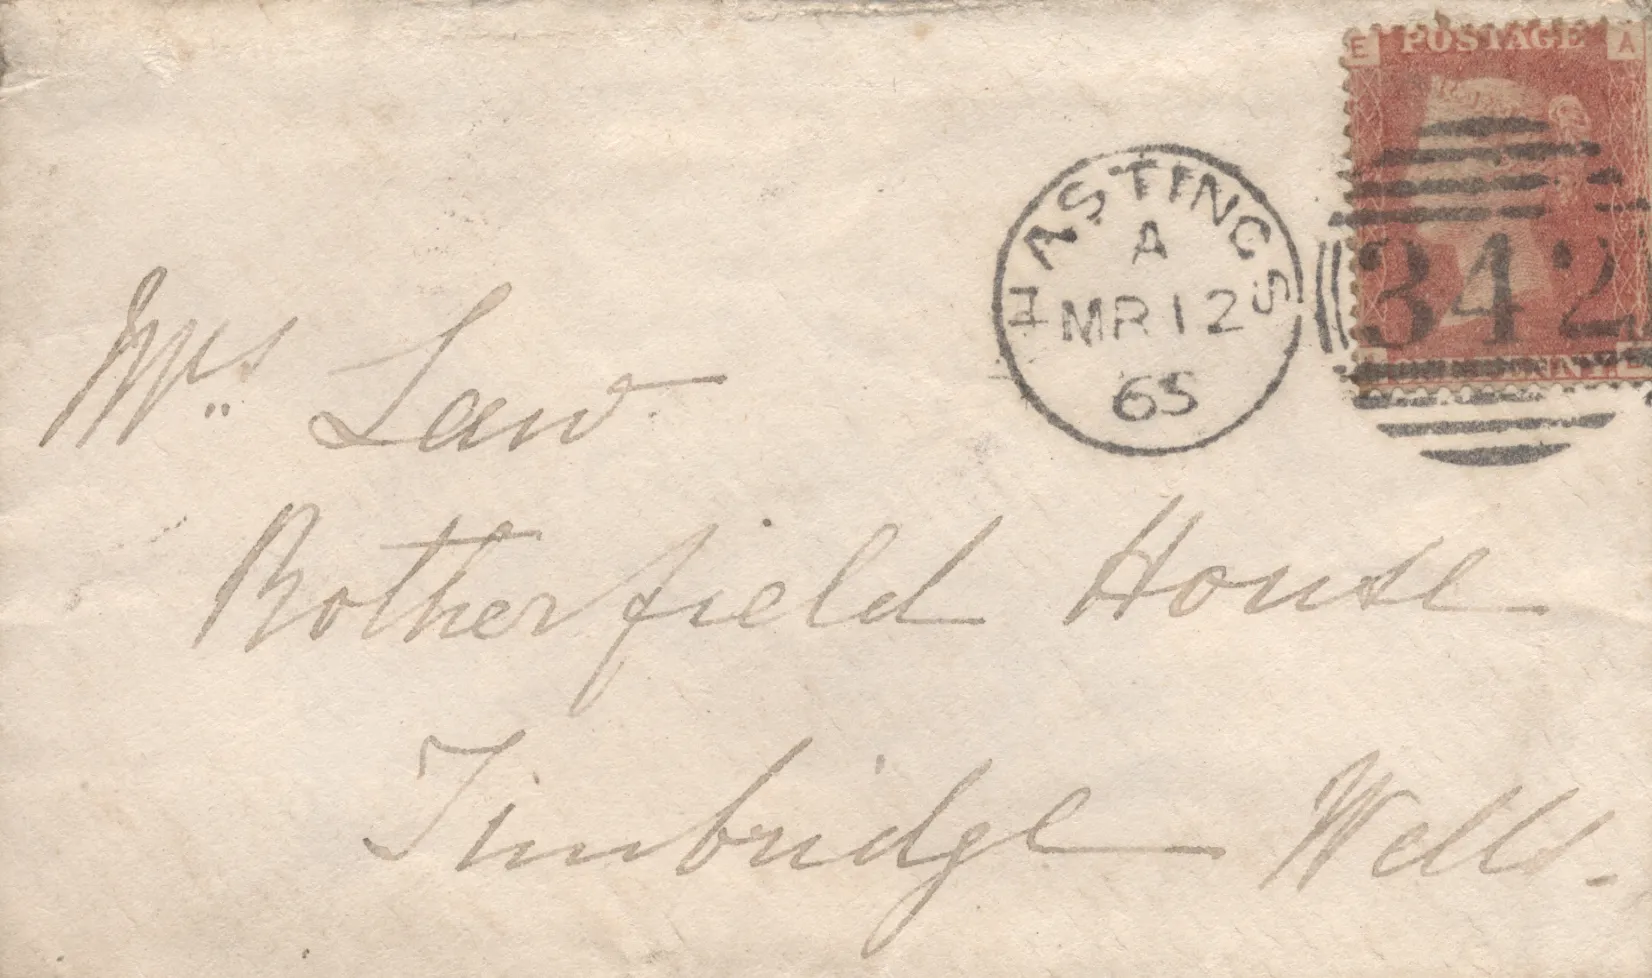 E POSTAGE A
HASTINGS
A
MR 12
65
342
Mrs Law
Rotherfield House
Tunbridge Wells.